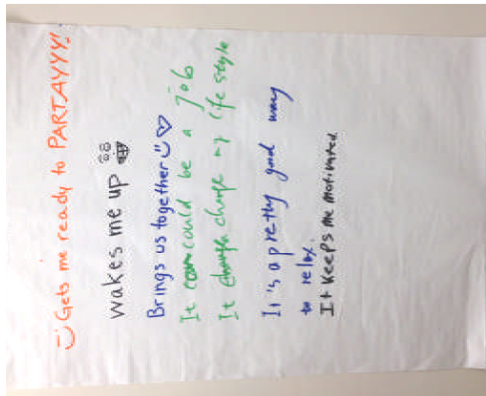 Gets me ready to PARTAYYY!
wakes me up
Brings us together
It could be a job
It change my life style
It's a pretty good way
to relax.
It keeps me motivated